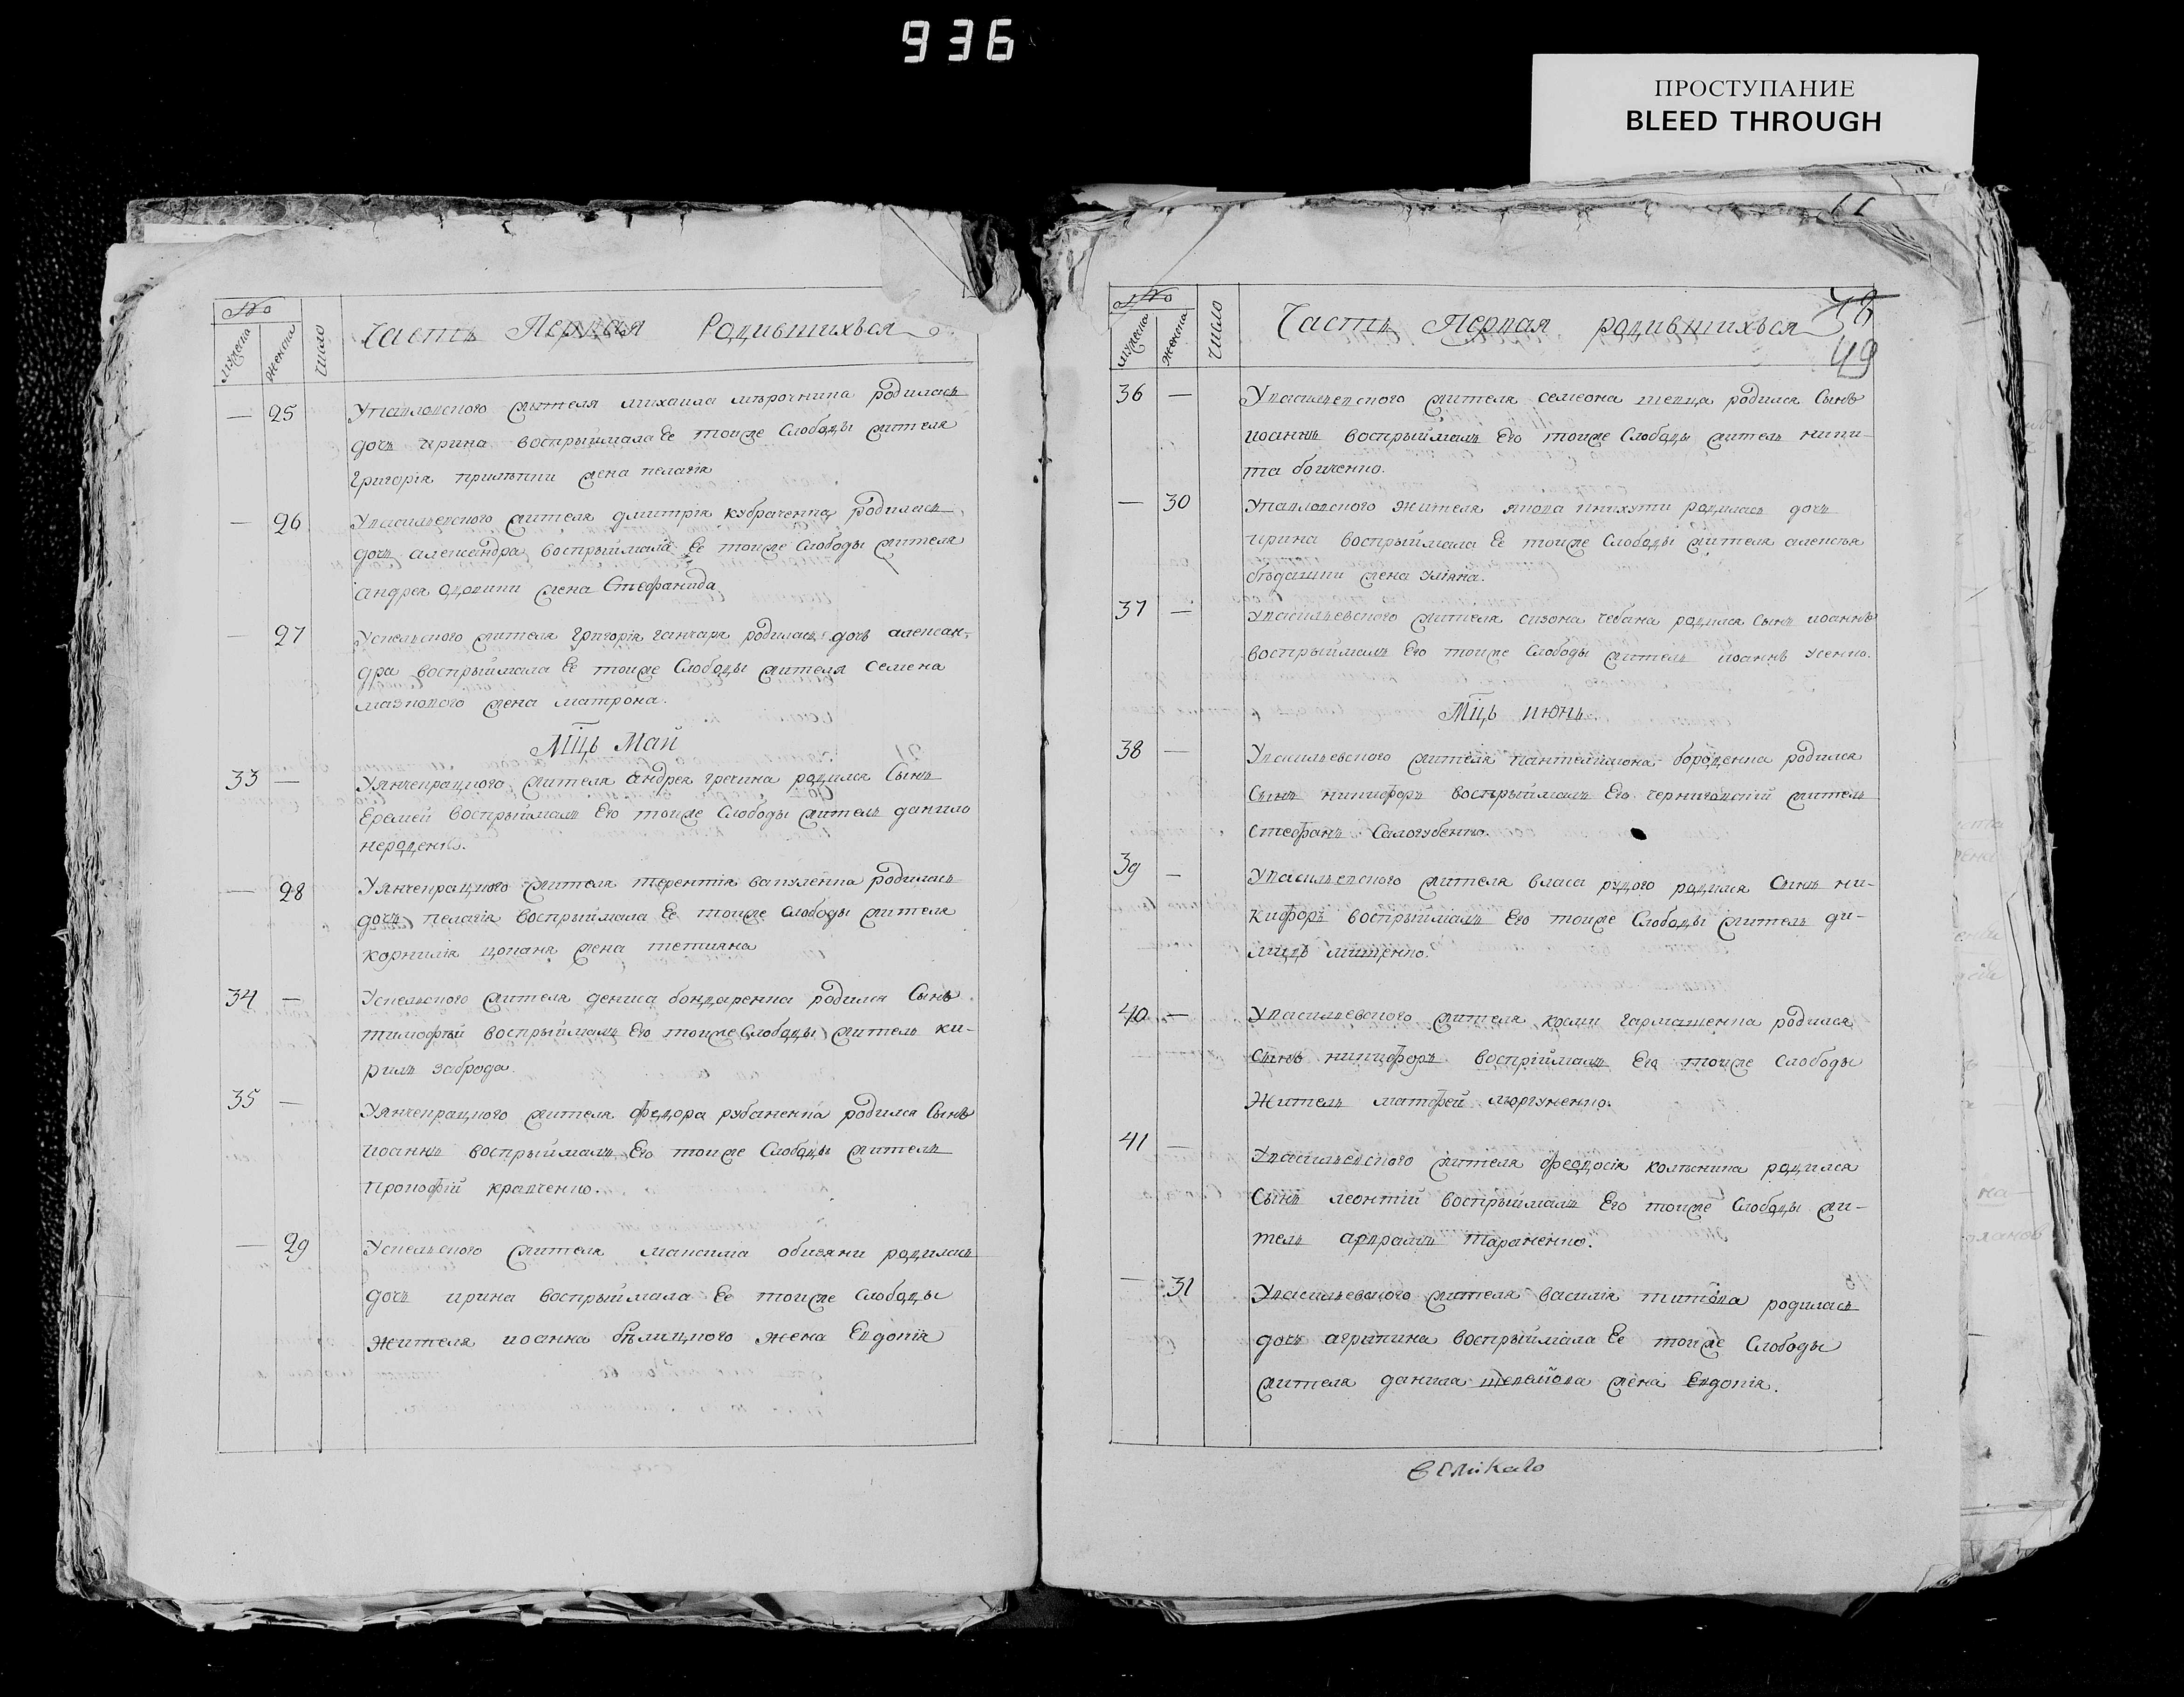 936
ПРОСТУПАНИЕ
BLEED THROUGH
№
мужеска
женска
число
Часть Первая Родившихъся
25
Упавловского жителя михаила родилась
дочь ирина восприймала Ее тоиже Слободы жителя
Григорія жена пелагія
26
Увасильевского жителя дмитрія кубраченка родилась
дочь александра восприймала Ее тоиже Слободы жителя
андрея жена Стефанида
27
жителя Григорія ганчаря родилась дочь алексан-
дра восприймала Ее тоиже Слободы жителя Семена
жена матрона.
Мцъ Май
33
Уянчекрацкого жителя андрея гречина родился Сынъ
Еремей восприймалъ Его тоиже Слободы житель данило
28
Уянчекрацкого жителя терентія вакуленка родилась
дочь пелагія восприймала Ее тоиже Слободы жителя
корнилія цопана жена тетияна
34
жителя дениса бондаренка родился Сынъ
тимофѣй восприймалъ Его тоиже Слободы житель ки-
рилъ заброда.
35
Уянчекрацкого жителя федора рубаненка родился Сынъ
иоаннъ восприймалъ Его тоиже Слободы житель
прокофій кравченко.
29
жителя максима обизяки родилась
дочь ирина восприймала Ее тоиже Слободы
жителя иоанна бѣлицкого жена Евдокія
№
мужеска
женска
число
Часть Первая родившихъся
48
49
36
Увасильевского жителя семеона шевца родился Сынъ
иоаннъ восприймалъ Его тоиже Слободы житель ники-
та бойченко.
30
Упавловского жителя якова родилась дочь
ирина восприймала Ее тоиже Слободы жителя алексѣя
жена уліяна.
37
Увасильевского жителя сизона чебана родился Сынъ иоаннъ
восприймалъ Его тоиже Слободы житель иоаннъ усенко.
Мцъ июнь.
38
Увасильевского жителя пантелимона бороденка родился
Сынъ никифоръ восприймалъ Его черниговский житель
стефанъ Самогубенко.
39
Увасильевского жителя власа рудого родился Сынъ ни-
кифоръ восприймалъ Его тоиже Слободы житель ди-
мидъ мищенко.
40
Увасильевского жителя козми гармашенка родился
Сынъ никифоръ восприймалъ Его тоиже Слободы
Житель матфей моргуненко.
41
Увасильевского жителя феодосія колѣсника родился
Сынъ леонтий восприймалъ Его тоиже Слободы жи-
тель авраамъ тараненко.
31
Увасильевского жителя василія титова родилась
дочь агрипина восприймала Ее тоиже Слободы
жителя данила жена Евдокія.
великаго